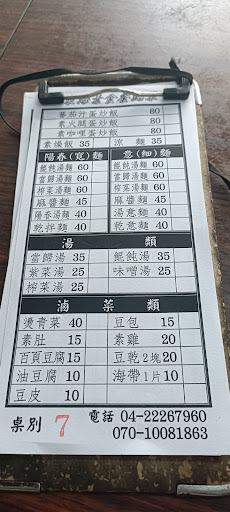 蕃茄汁蛋炒飯 80
素火腿蛋炒飯 80
素咖哩蛋炒飯 80
素燥飯 35 涼麵 35
陽春(寬)麵 意(細)麵
餛飩湯麵 60 餛飩湯麵 60
當歸湯麵 60 當歸湯麵 60
榨菜湯麵 60 榨菜湯麵 60
麻醬麵 45 麻醬麵 45
陽春湯麵 40 湯意麵 40
乾拌麵 40 乾意麵 40
湯類
當歸湯 35 餛飩湯 35
紫菜湯 25 味噌湯 25
榨菜湯 25
滷菜類
燙青菜 40 豆包 15
素肚 15 素雞 20
百頁豆腐 15 豆乾2塊 20
油豆腐 10 海帶1片 10
豆皮 10
桌別 7 電話 04-22267960
070-10081863